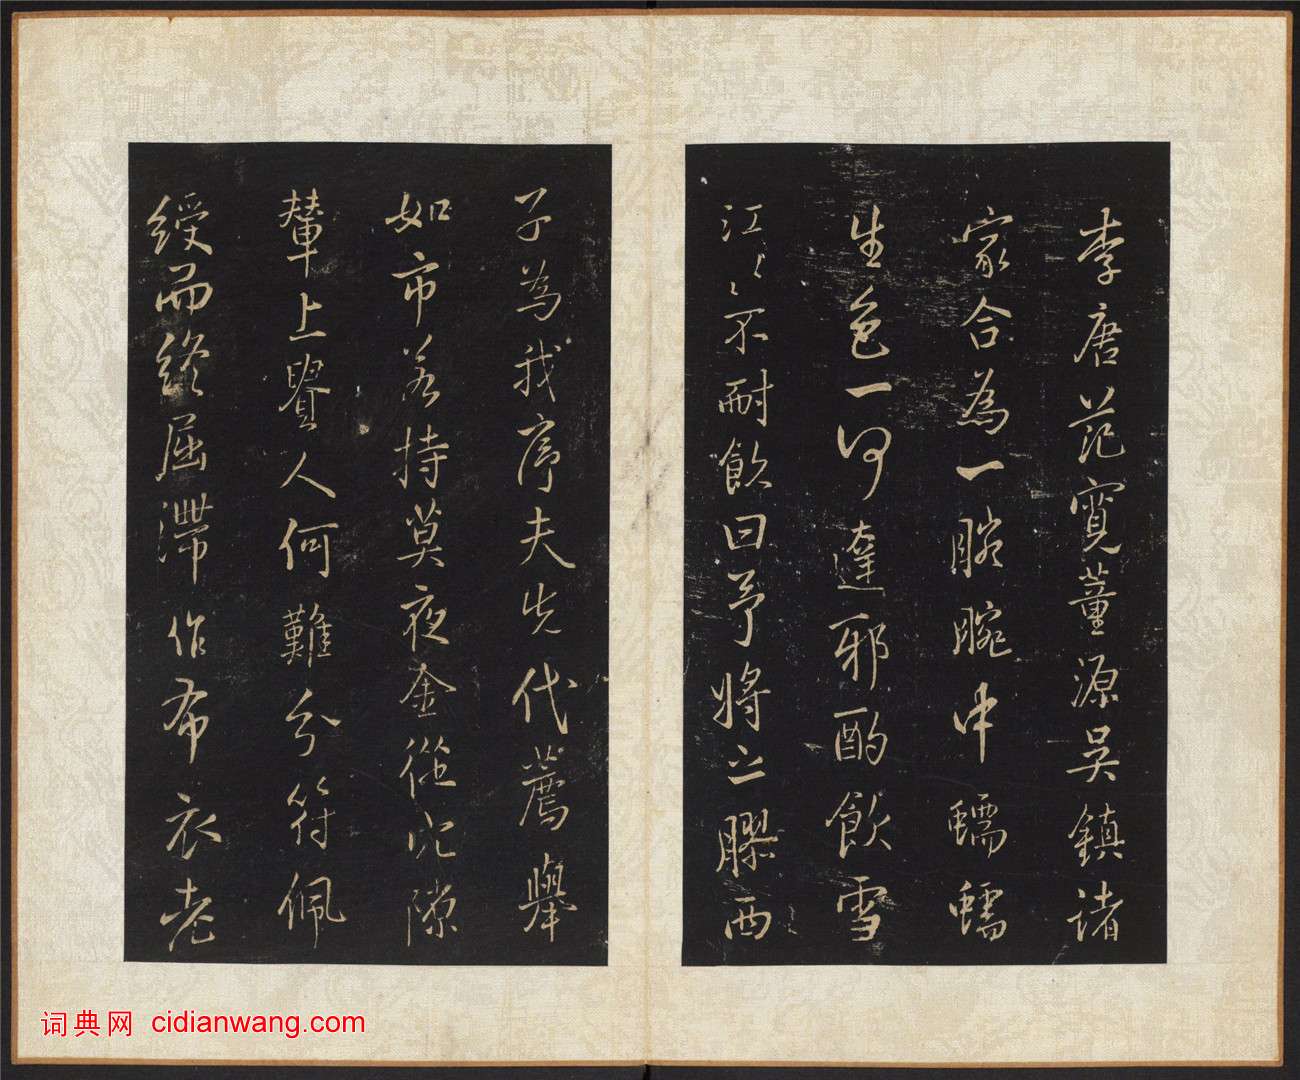 李唐范寬董源吳鎮諸
家合為一腕腕中蠕蠕
生色一何達邪酌飲雪
江〻不耐飲曰予將之膠西
子為我序夫先代薦舉
如市若持莫夜金從穴隙
輦上貴人何難分符佩
綬而終屈滯作布衣老
词典网 cidianwang.com